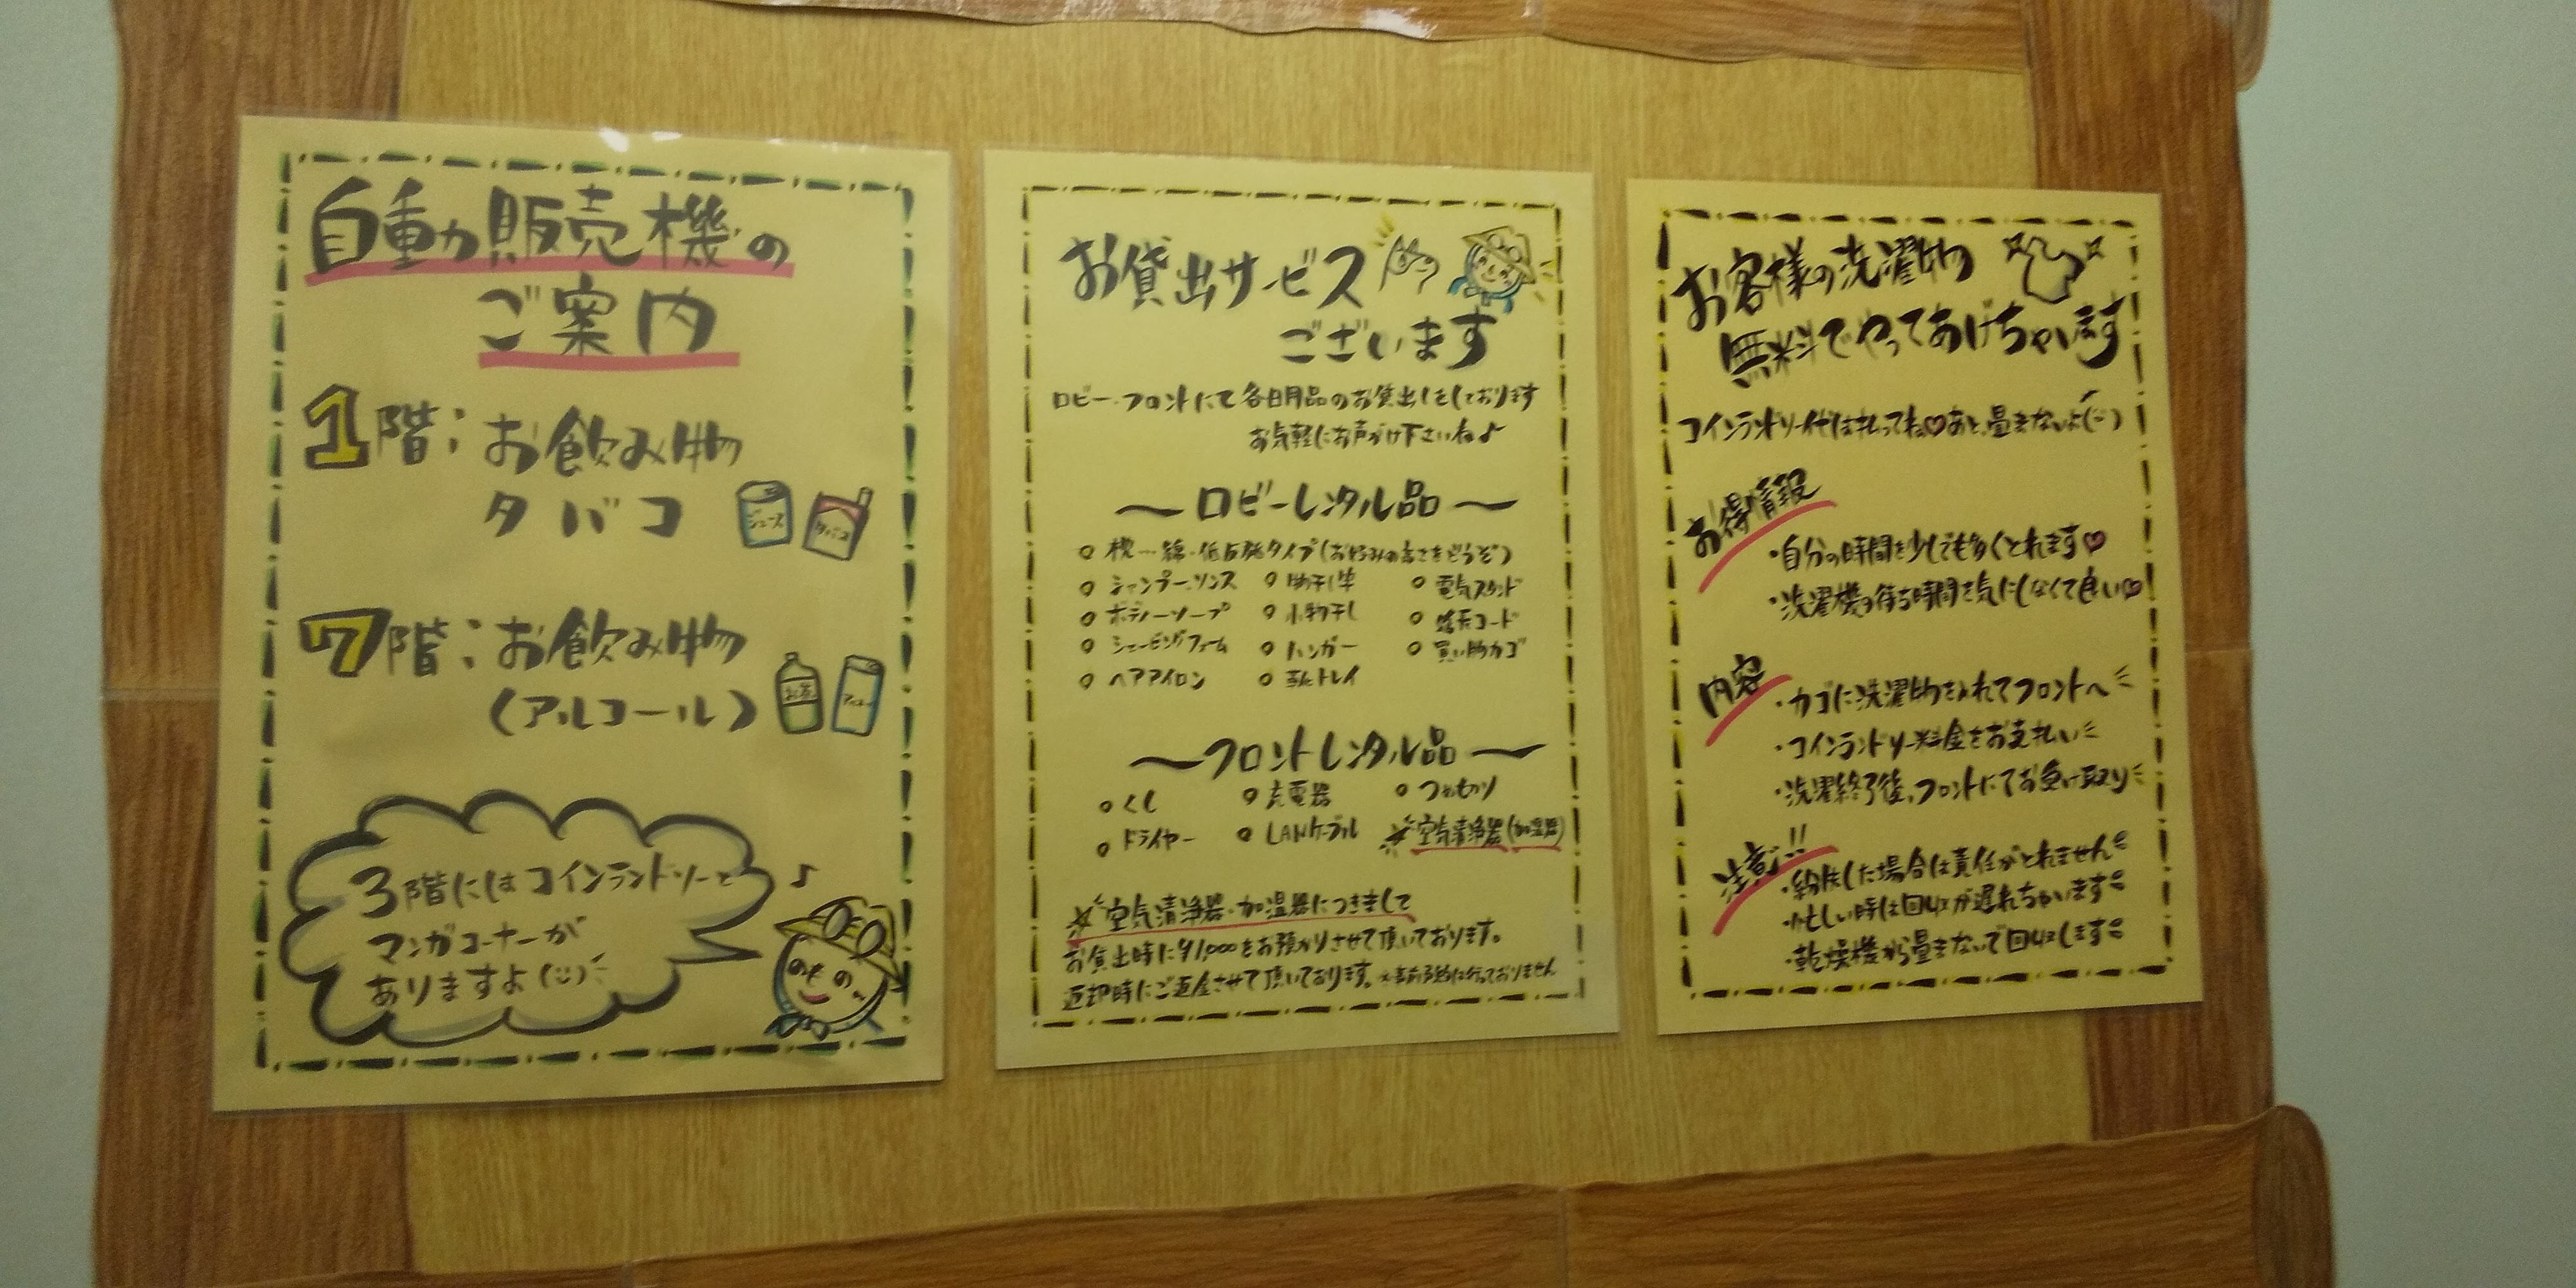 自動販売機の
ご案内
1階：お飲み物
タバコ
ジュース
タバコ
7階：お飲み物
(アルコール)
お茶
3階にはコインランドリーと
マンガコーナーが
ありますよ(ﾆ)
♪
お貸出サービス
ございます
ロビー・フロントにて各日用品のお貸出しをしております
お気軽にお声がけ下さいね♪
〜ロビーレンタル品〜
○ 枕…綿・低反発タイプ(お好みの高さをどうぞ)
○ シャンプー・リンス ○ 物干し竿 ○ 電気スタンド
○ ボディーソープ ○ 小物干し ○ 延長コード
○ シェービングフォーム ○ ハンガー ○ 買い物カゴ
○ ヘアアイロン ○ トレイ
〜フロントレンタル品〜
○ くし ○ 充電器 ○ つめきり
○ ドライヤー ○ LANケーブル ☆空気清浄器(加湿器)
☆空気清浄器・加湿器につきまして
お貸出時に¥1,000をお預かりさせて頂いております。
返却時にご返金させて頂いております。※事前予約は行っておりません
お客様の洗濯物
無料でやってあげちゃいます
コインランドリー代は払ってね♡あと、畳まないよ(ﾆ)
お得情報
・自分の時間を少しでも多くとれます♡
・洗濯機の待ち時間を気にしなくて良い♡
内容
・カゴに洗濯物を入れてフロントへ
・コインランドリー料金をお支払い
・洗濯終了後、フロントにてお受け取り
注意!!
・紛失した場合は責任がとれません
・忙しい時は回収が遅れちゃいます
・乾燥機から畳まないで回収します